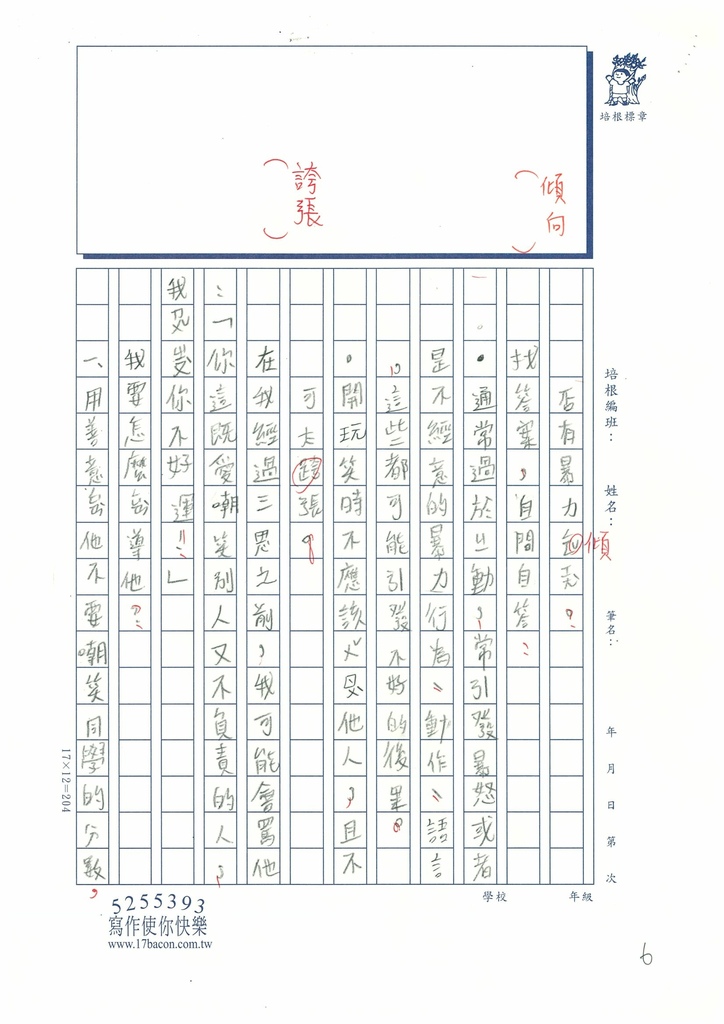 培根標章
傾向
誇張
培根編班：　姓名：　筆名：　年　月　日　第　次
年級
學校
否有暴力　　？
傾
找答案，自問自答：
。通常過於心動，常引發暴怒或者
是不經意的暴力行為、動作、語言
，這些都可能引發不好的後果。
。開玩笑時不應該ㄨˇ辱他人，且不
可太跨張。
在我經過三思之前，我可能會罵他
：「你這既愛嘲笑別人又不負責的人，
我忍受你不好運！」
我要怎麼勸導他？：
一、用善意勸他不要嘲笑同學的分數，
17×12=204
5255393
寫作使你快樂
www.17bacon.com.tw
6